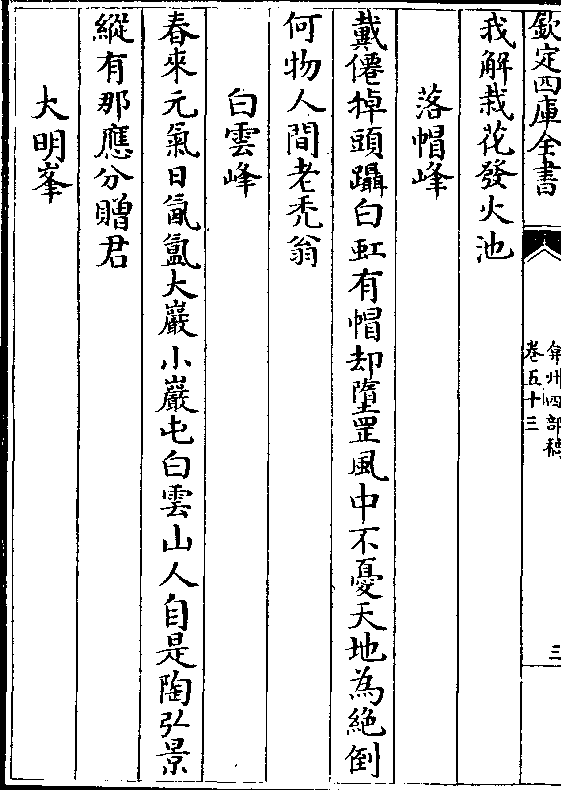 欽定四庫全書
弇州四部稿
卷五十三
三
我解栽花發火池
落帽峰
戴僊掉頭躡白虹有帽却墮罡風中不憂天地為絕倒
何物人間老禿翁
白雲峰
春來元氣日氤氳大巖小巖屯白雲山人自是陶弘景
縱有那應分贈君
大明峯